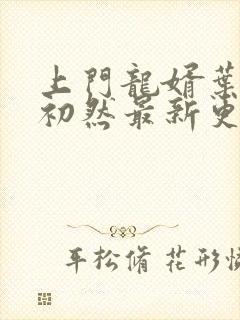 上門龍婿葉
初然最新更
平松脩 花形